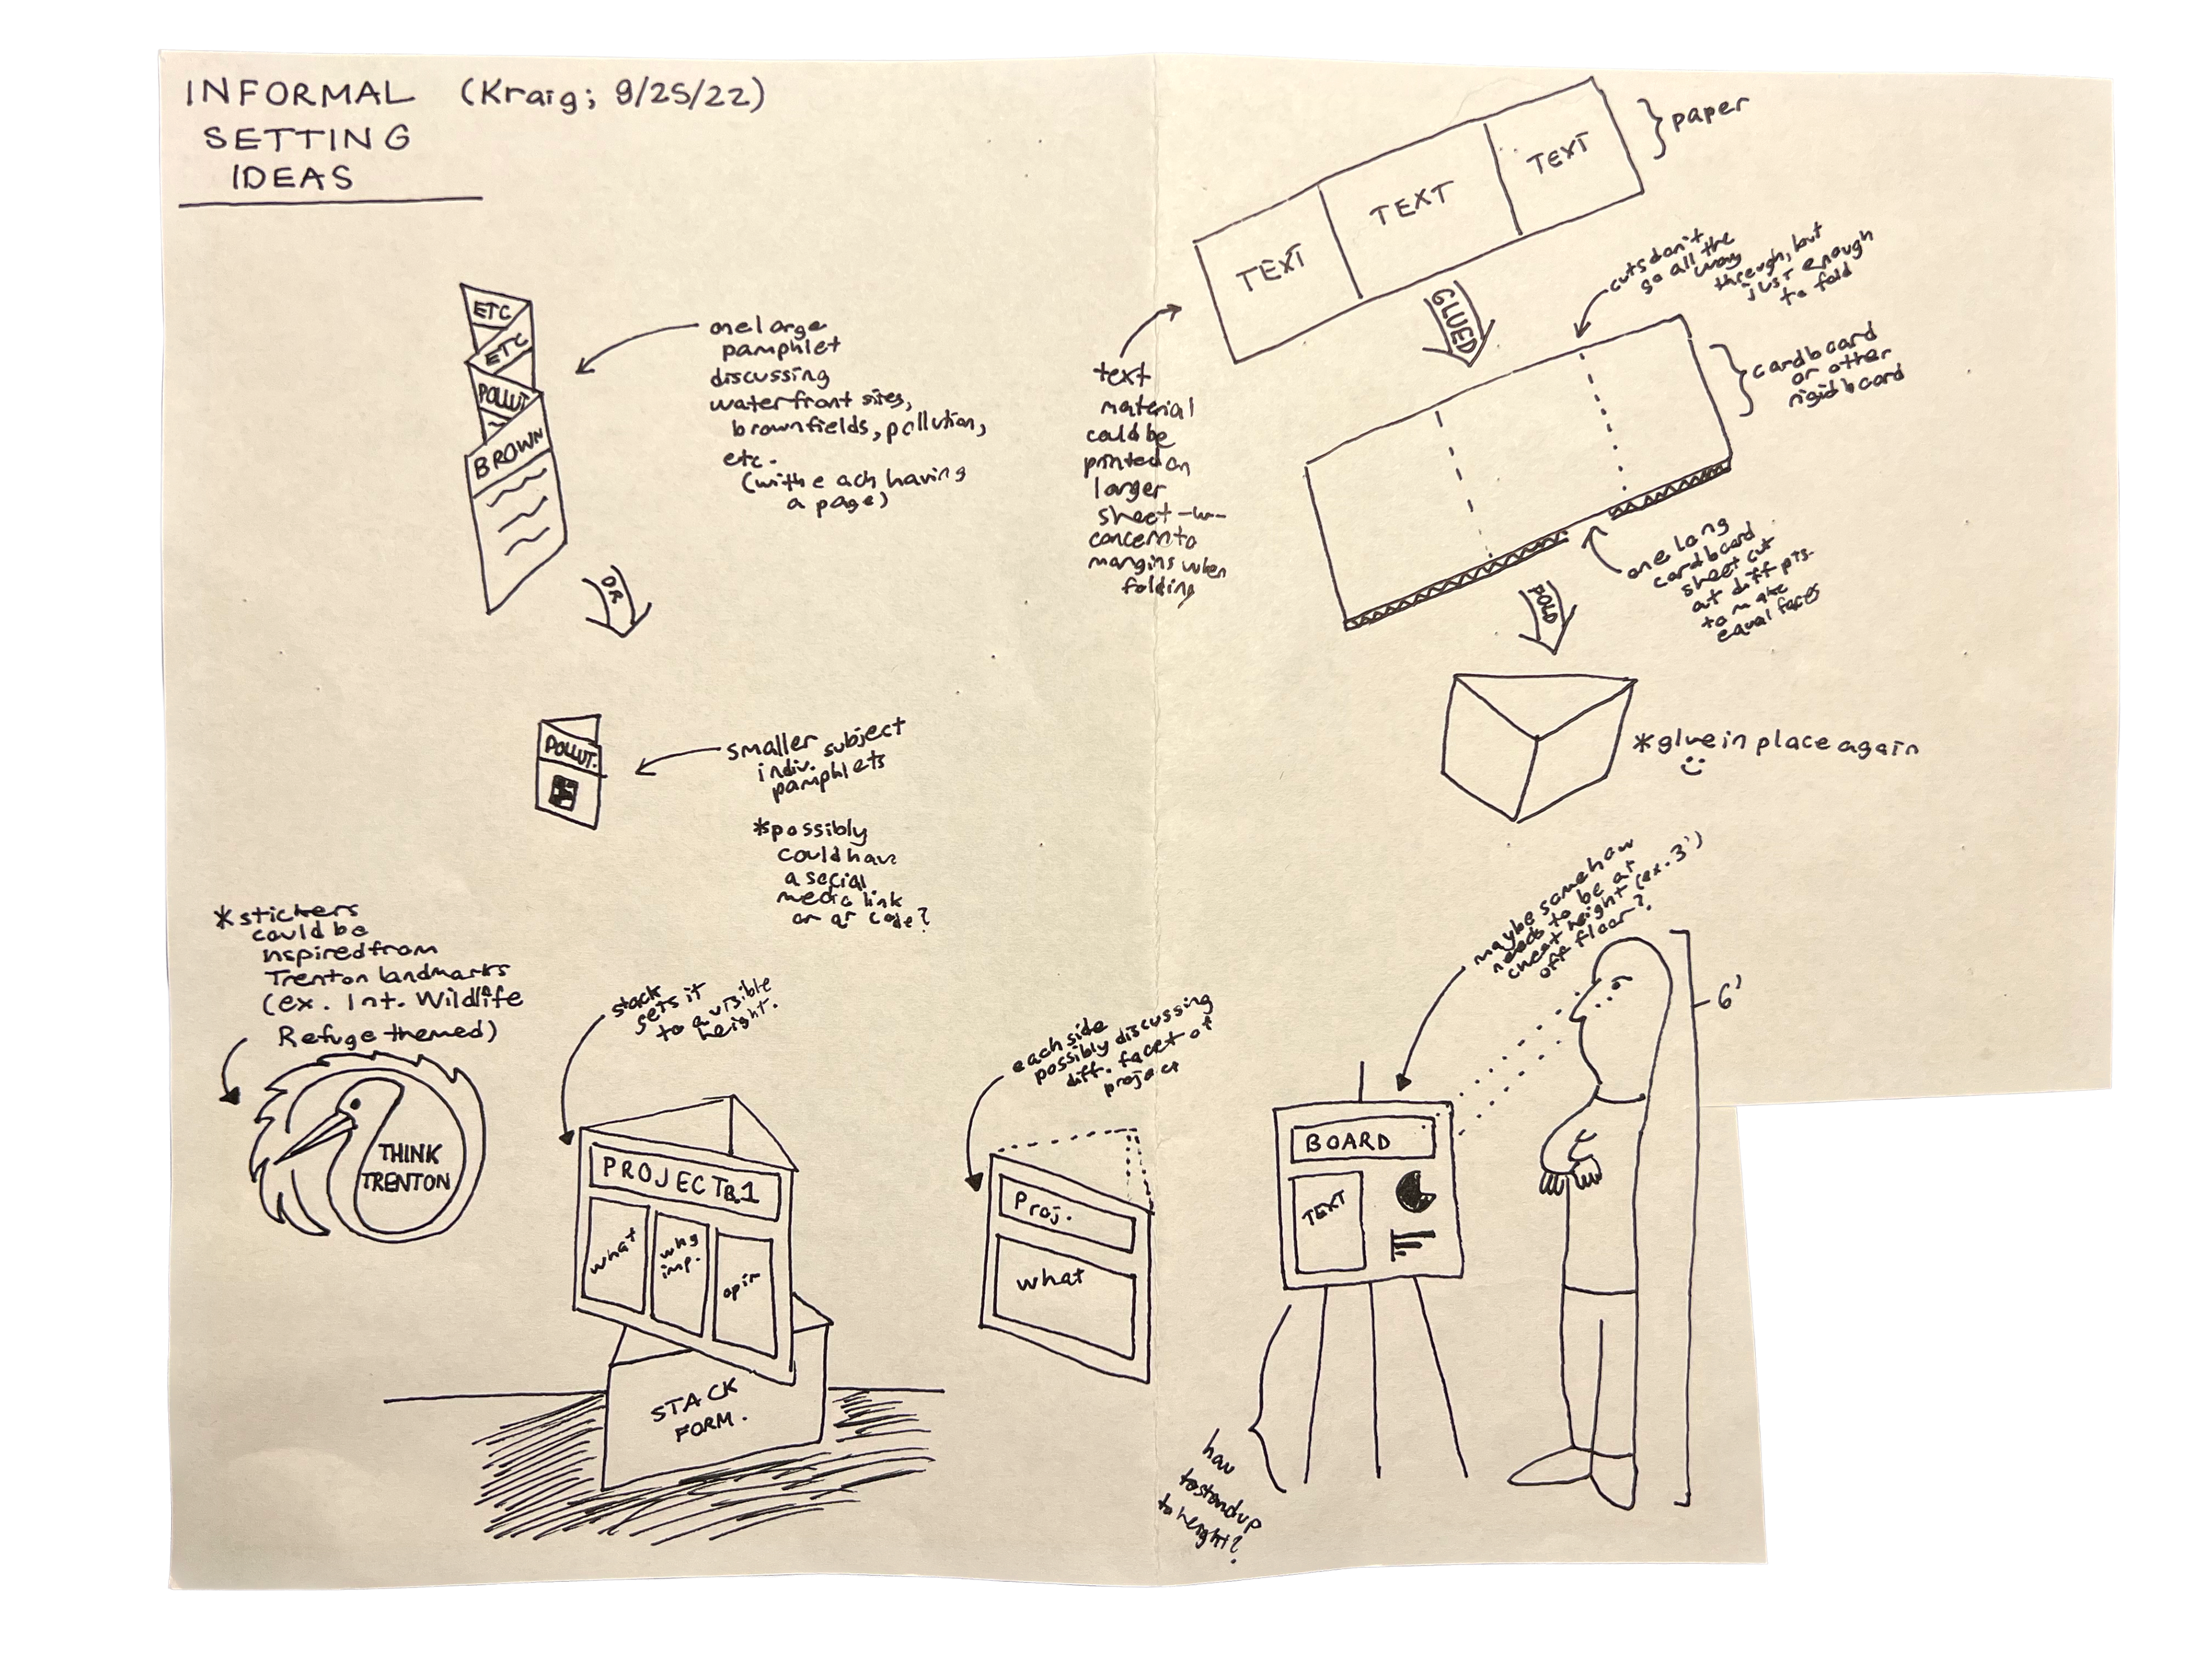 INFORMAL (Kraig; 9/25/22)
SETTING
IDEAS
ETC
ETC
POLLUT
BROWN
one large
pamphlet
discussing
waterfront sites,
brownfields, pollution,
etc.
(with each having
a page)
OR
POLLUT.
smaller subject
indiv.
pamphlets
*possibly
could have
a social
media link
or qr code?
*stickers
could be
inspired from
Trenton landmarks
(ex. Int. Wildlife
Refuge themed)
THINK
TRENTON
stack
sets it
to a visible
height.
PROJECT B.1
what
why
imp.
STACK
FORM.
each side
possibly discussing
diff. facet of
project
Proj.
what
TEXT
TEXT
TEXT
paper
text
material
could be
printed on
larger
sheet -w-
concern to
margins when
folding
GLUED
cuts don't
go all the
way
through, but
just enough
to fold
cardboard
or other
rigid board
one long
cardboard
sheet cut
at diff pts.
to make
equal faces
FOLD
*glue in place again
maybe somehow
needs to be at
chest height (ex. 3')
off floor?
6'
BOARD
TEXT
how
to stand up
to height?